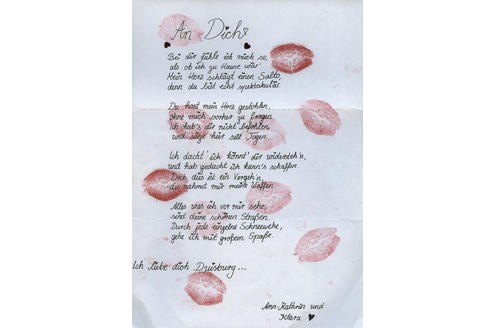 An Dich
Bei dir fühle ich mich so,
als ob ich zu Hause wär.
Mein Herz schlägt einen Salto,
denn du bist echt spektakulär.
Du hast mein Herz gestohlen,
ohne mich vorher zu fragen.
Ich hab's dir nicht befohlen
und sitze hier seit Tagen.
Ich dacht' ich könnt' dir widersteh'n,
und hab gedacht ich kann's schaffen.
Doch dies ist ein Vergeh'n,
du nahmst mir meine Waffen.
Alles was ich vor mir sehe,
sind deine schönen Straßen.
Durch jede einzelne Schneewehe,
gehe ich mit großem Spaße.
Ich liebe dich Duisburg...
Ann-Kathrin und
Klara